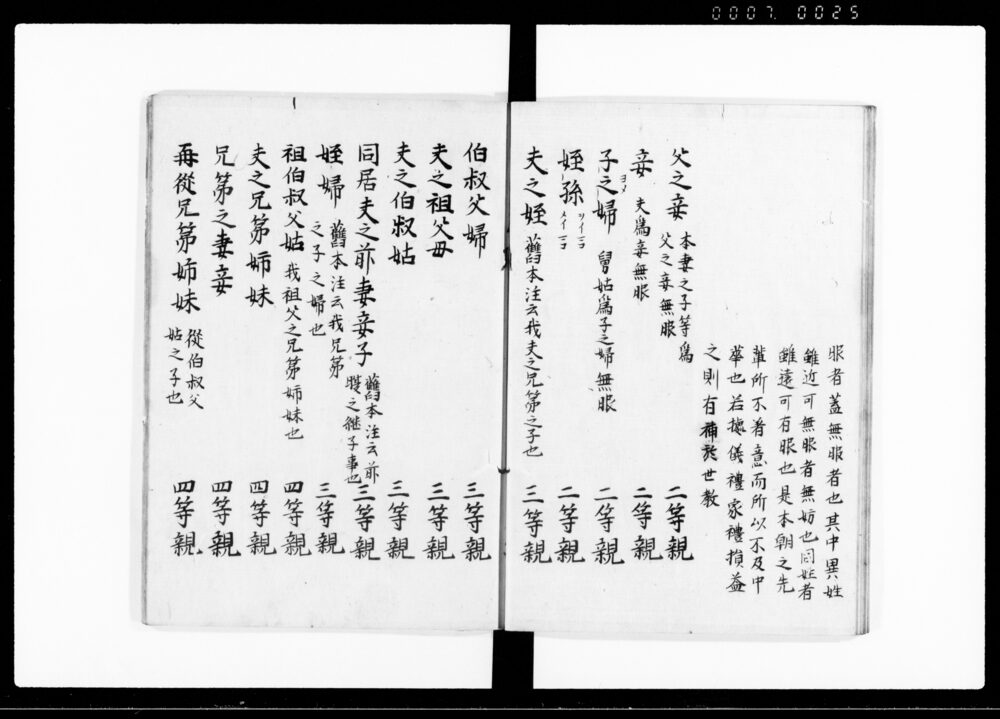 0007 0025
服者蓋無服者也其中異姓
雖近可無服者無妨也同姓者
雖遠可有服也是本朝之先
輩所不着意而所以不及中
華也若據儀禮家禮損益
之則有補於世教
父之妾 本妻之子等爲父之妾無服 二等親
妾 夫爲妾無服 二等親
子之婦 ヨメ 舅姑爲子之婦無服 二等親
姪孫 二等親
夫之姪 舊本注云我夫之兄第之子也 三等親
伯叔父婦 三等親
夫之祖父母 三等親
夫之伯叔姑 三等親
同居夫之前妻妾子 舊本注云前腹之継子事也 三等親
姪婦 舊本注云我兄第之子之婦也 三等親
祖伯叔父姑 我祖父之兄第姉妹也 四等親
夫之兄第姉妹 四等親
兄第之妻妾 四等親
再從兄第姉妹 從伯叔父姑之子也 四等親